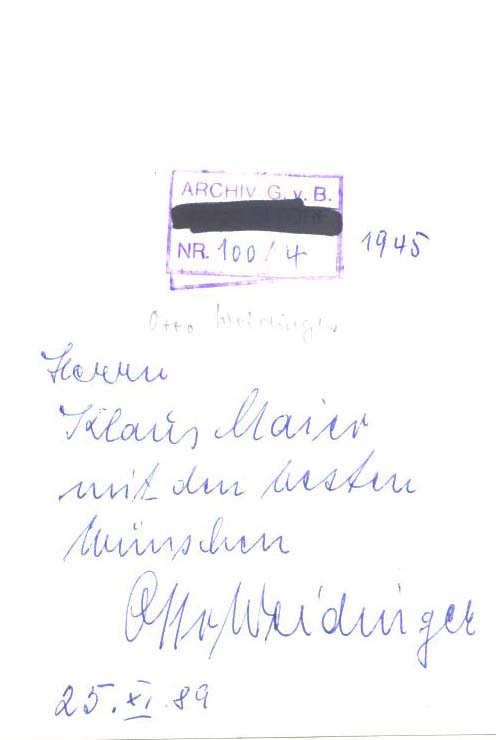 ARCHIV G. v. B.
NR. 100/4 1945
Otto Weidinger
Herrn
Klaus Maier
mit den besten
Wünschen
Otto Weidinger
25. XI. 89